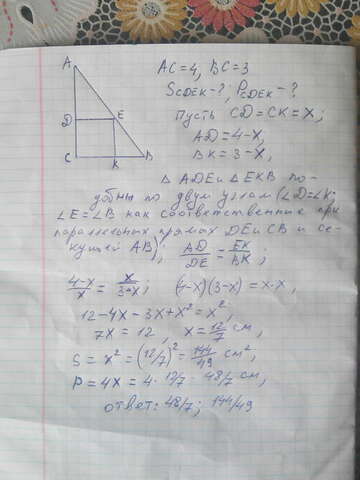 A
D
E
C
K
B
AC=4, BC=3
SCDEK-?, PCDEK-?
Пусть CD=CK=X;
AD=4-X,
BK=3-X,
△ ADE и △ EKB по-
добны по двум углам (∠D=∠K;
∠E=∠B как соответственные при
параллельных прямых DE и CB и се-
кущей AB); AD/DE = EK/BK;
4-x/x = x/3-x; (4-x)(3-x)=x·x,
12-4x-3x+x²=x²;
7x=12, x=12/7 см,
S=x²=(12/7)²=144/49 см²,
P=4x=4·12/7=48/7 см,
ответ: 48/7; 144/49